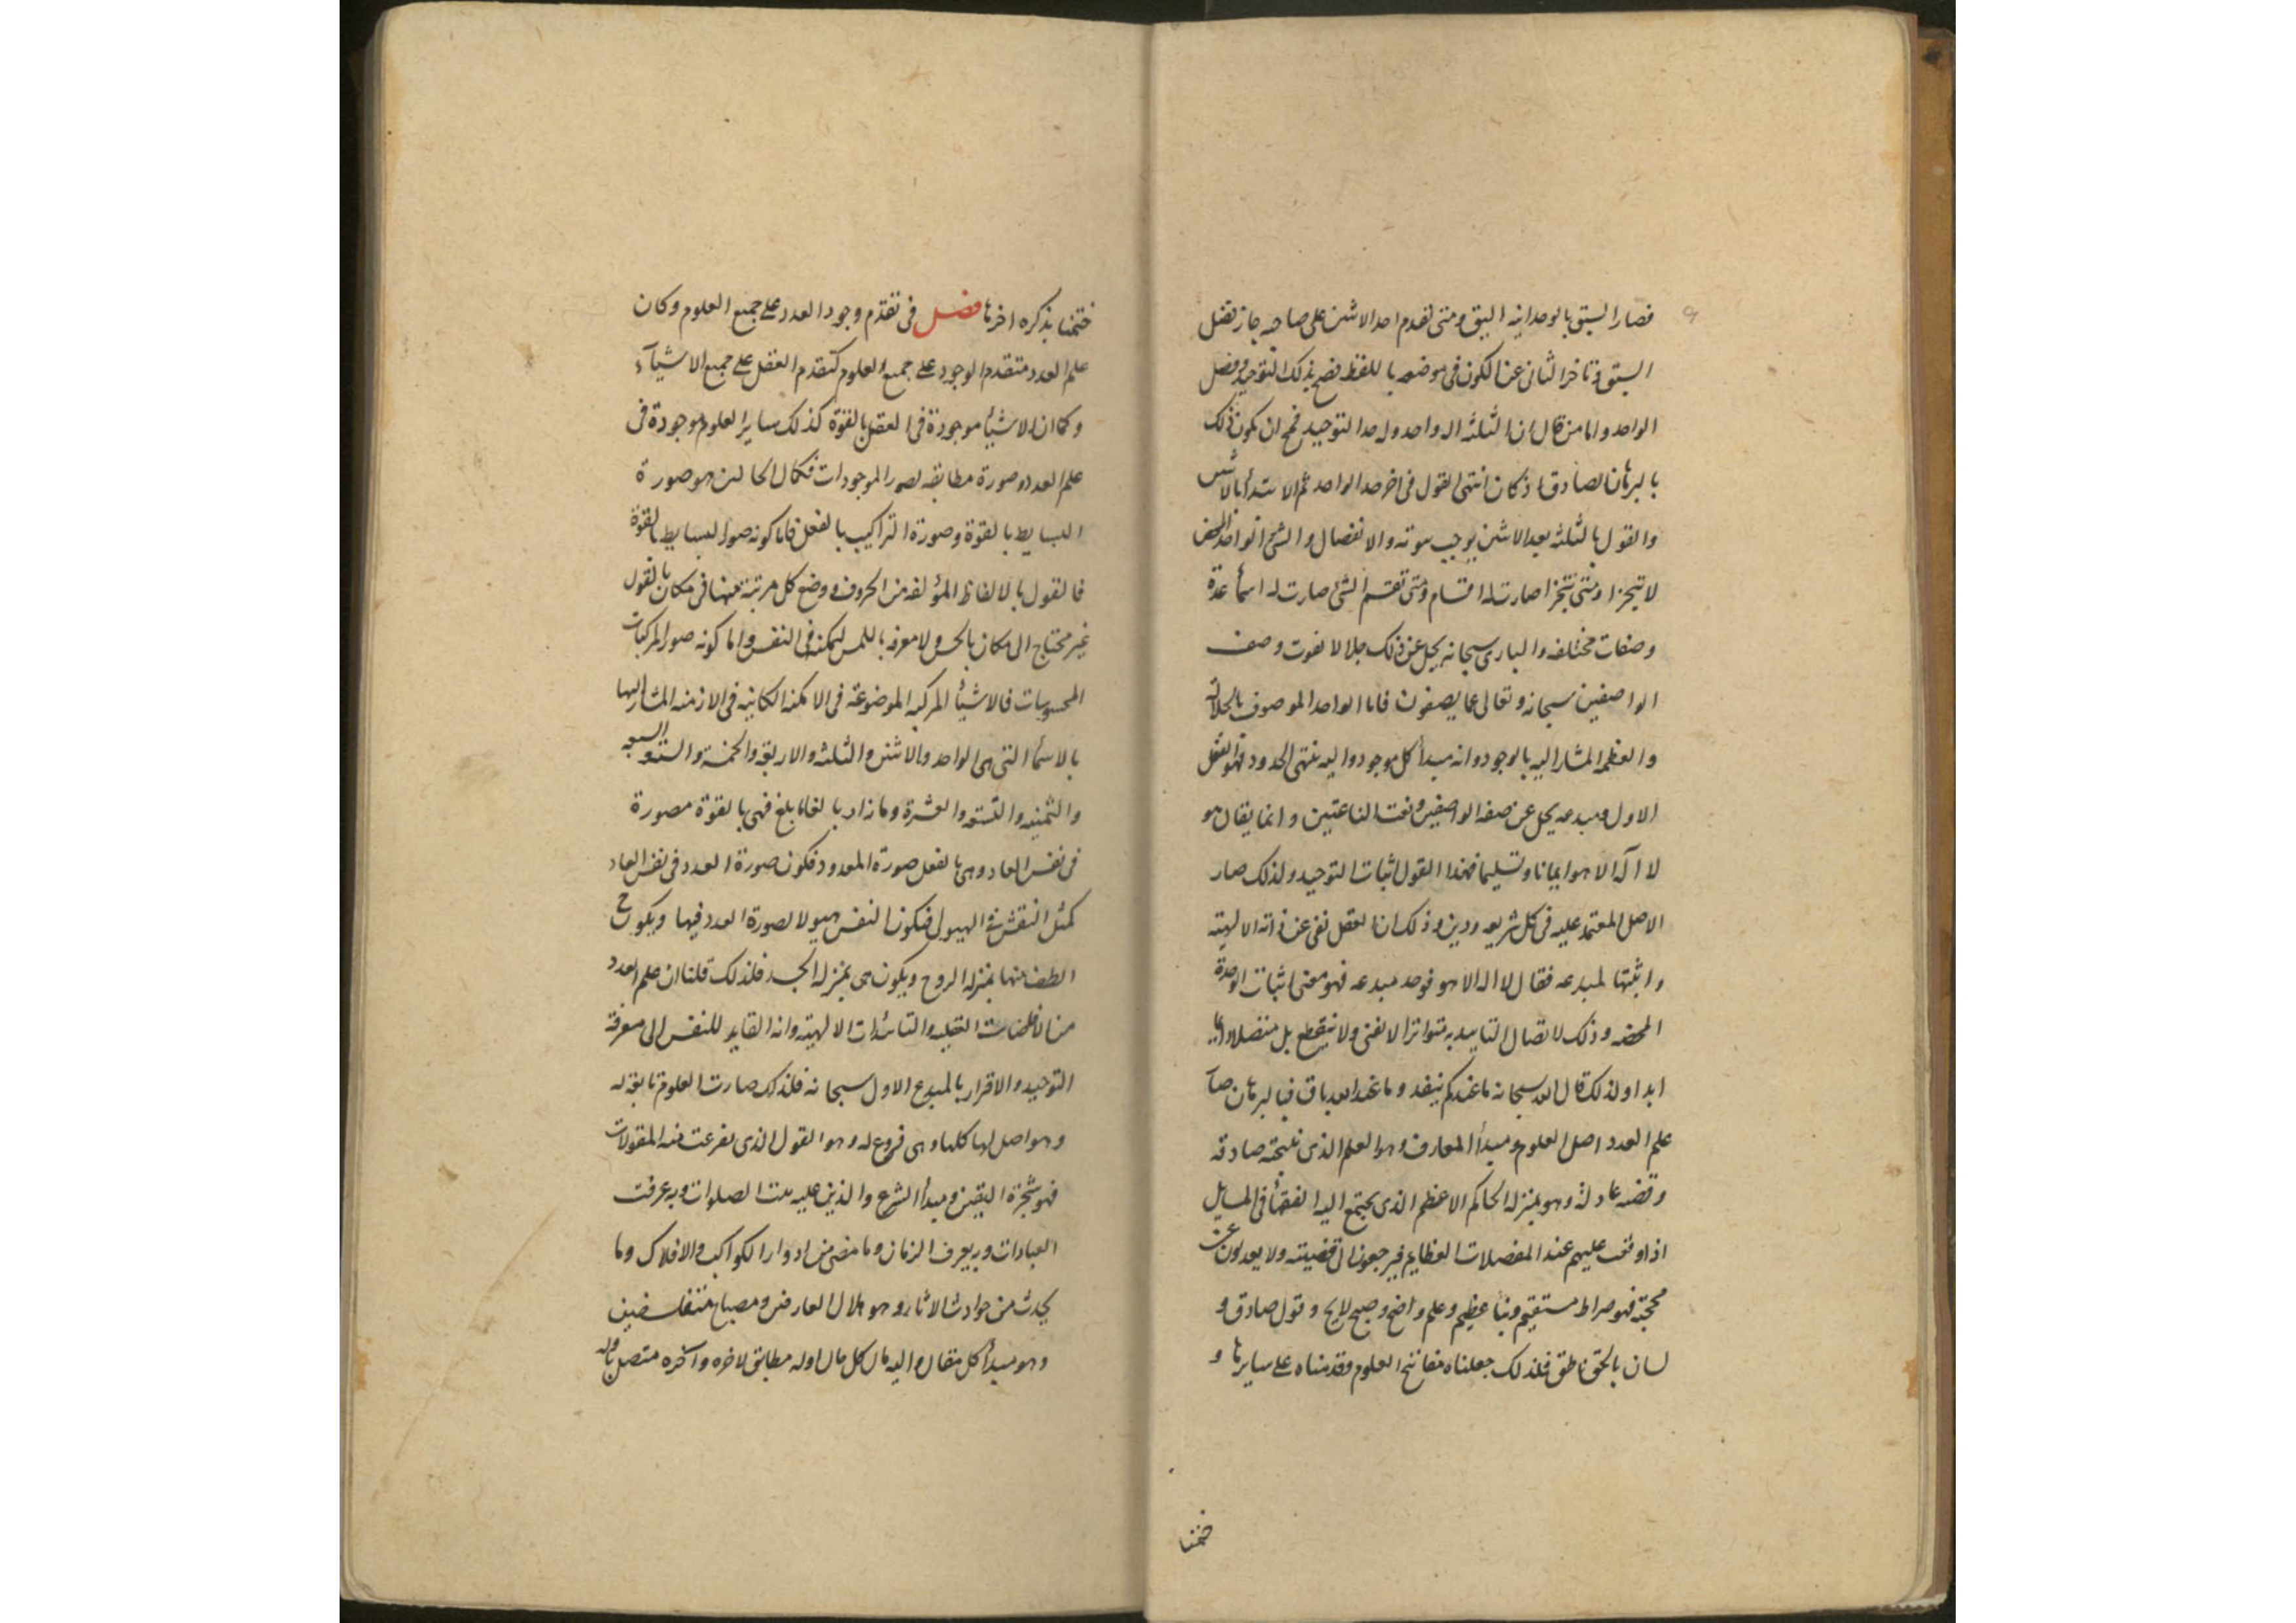 فصار السبق بالوحدانية اليق ومتى تقدم احد الاثنين على صاحبه جاز تفضل
السبق وتاخر الثانى عن الكون فى موضعه باللفظ فصح بذلك التوحيد وفضل
الواحد واما من قال ان الثلثه الواحد وله حد التوحيد فمح ان يكون ذلك
بالبرهان لصادق اذ كان انتهى القول فى اخر حد الواحد ثم الابتدأ بالاثنين
والقول بالثلثه بعد الاثنين يوجب والانفصال والشئ الواحد المحض
لا يتجزا ومتى تتجزا صارت له اقسام ومتى تقسم الشئ صارت له اسمأ عدة
وصفات مختلفه والبارى سبحانه يجل عن ذلك جلالا يفوت وصف
الواصفين سبحانه وتعالى عما يصفون فاما الواحد الموصوف بالجلاله
والعظمه المشار اليه بالوجود وانه مبدأ كل موجود واليه ينتهى الحدود فهو العقل
الاول ومبدعه يجل عن صفه الواصفين ونعت الناعتين وانما يقال هو
لا اله الا هو ايمانا وتسليما فهذا القول اثبات التوحيد ولذلك صار
الاصل المعتمد عليه فى كل شريعه ودين وذلك ان العقل نفى عن ذاته الالهيته
واثبتها لمبدعه فقال لا اله الا هو فوحد مبدعه فهو معنى اثبات الوحدة
المحضه وذلك لاتصال التاييد به متواترا لا يفنى ولا ينقطع بل متصلا دايما
ابدا ولذلك قال الله سبحانه ما عندكم ينفد وما عند الله باق فبالبرهان صار
علم العدد اصل العلوم ومبدأ المعارف وهو العلم الذى نتيجته صادقه
وقضيه عادلة وهو بمنزله الحاكم الاعظم الذى يجتمع اليه الفقهأ فى المسايل
اذا وقعت عليهم عند المعضلات العظايم فيرجعون الى قضيته ولا يعدلون عن
محجته فهو صراط مستقيم ونبأ عظيم وعلم واضح وصبح لايح وقول صادق و
لسان بالحق ناطق فلذلك جعلناه مفاتيح العلوم وقدمناه على سايرها و
ختمنا
ختمنا بذكره اخرها فصل فى تقدم وجود العدد على جميع العلوم وكان
علم العدد متقدم الوجود على جميع العلوم كتقدم العقل على جميع الاشيآء
وكما ان الاشيأ موجودة فى العقل بالقوة كذلك ساير العلوم موجودة فى
علم العدد وصورة مطابقه لصور الموجودات فكمال الحالين هو صورة
البسايط بالقوة وصورة التراكيب بالفعل فاما كونه صور البسايط بالقوة
فالقول بالالفاظ المؤلفه من الحروف ووضع كل مرتبة منها فى مكان بالقول
غير محتاج الى مكان بالحس ولا معرفه باللمس ليمكنه فى النفس واما كونه صور المركبات
المحسوسات فالاشيأ المركبه الموضوعة فى الامكنه الكاينه فى الازمنه المشار اليها
بالاسمأ التى هى الواحد والاثنين والثلثه والاربعة والخمسة والستة والسبعه
والثمنيه والتسعه والعشرة وما زاد بالغا ما بلغ فهى بالقوة مصورة
فى نفس العاد وهى بالفعل صورة المعدود فتكون صورة العدد فى نفس العاد
كمثل النقش فى الهيولى فتكون النفس هيولا لصورة العدد فيها ويكون ح
الطف منها بمنزله الروح ويكون هى بمنزله الجسد فلذلك قلنا ان علم العدد
من الافاضات العقليه والتائدات الالهيته وانه القايد للنفس الى معرفة
التوحيد والاقرار بالمبدع الاول سبحانه فلذلك صارت العلوم تابعة له
وهو اصل لها كلها وهى فروع له وهو القول الذى تفرعت منه المقولات
فهو شجرة اليقين ومبدأ الشرع والذين عليه بنيت الصلوات وبه عرفت
العبادات وبه يعرف الزمان وما مضى من ادوار الكواكب والافلاك وما
يحدث من حوادث الاثار وهو هلال العارفين ومصباح متفلسفين
وهو مبدأ كل مقال واليه مال كل مال اوله مطابق لاخره وآخره متصل باوله